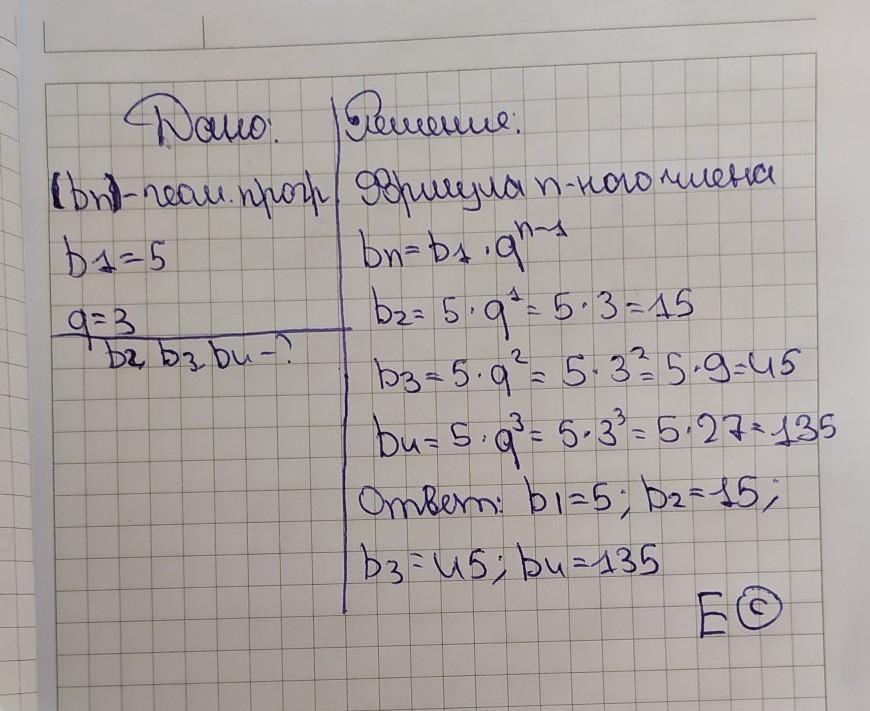 Дано:
(bn)-геом. прогр
b1=5
q=3
b2, b3, b4-?
Решение:
Формула n-ного члена
bn=b1·q^n-1
b2=5·q^1=5·3=15
b3=5·q^2=5·3^2=5·9=45
b4=5·q^3=5·3^3=5·27=135
Ответ: b1=5; b2=15;
b3=45; b4=135
E©